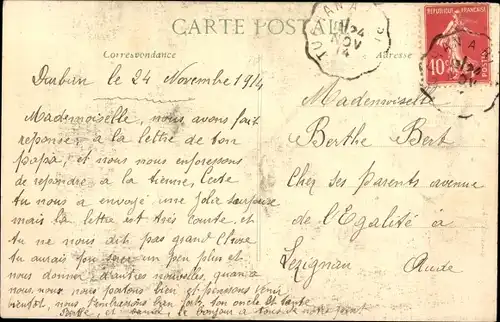 CARTE POSTALE
Correspondance
Adresse
RÉPUBLIQUE FRANÇAISE
10
NOV
14
le 24 Novembre 1914
Mademoiselle, nous avons fait
reponse à la lettre de ton
papa, et nous nous enforssons
de repondre à la tienne,
tu nous a envoyé une jolie
mais la lettre est très courte et
tu ne nous dit pas grand Chose
tu aurais pu un peu plus et
nous donner d'autres nouvelles, quand à
nous, nous nous portons bien et pensons venir
bientôt, nous t'embrassons bien fort, ton oncle et tante
et le bonjour à tous de notre part.
Mademoiselle
Berthe Bert
Chez ses Parents avenue
de l'Egalité à
Lezignan
Aude